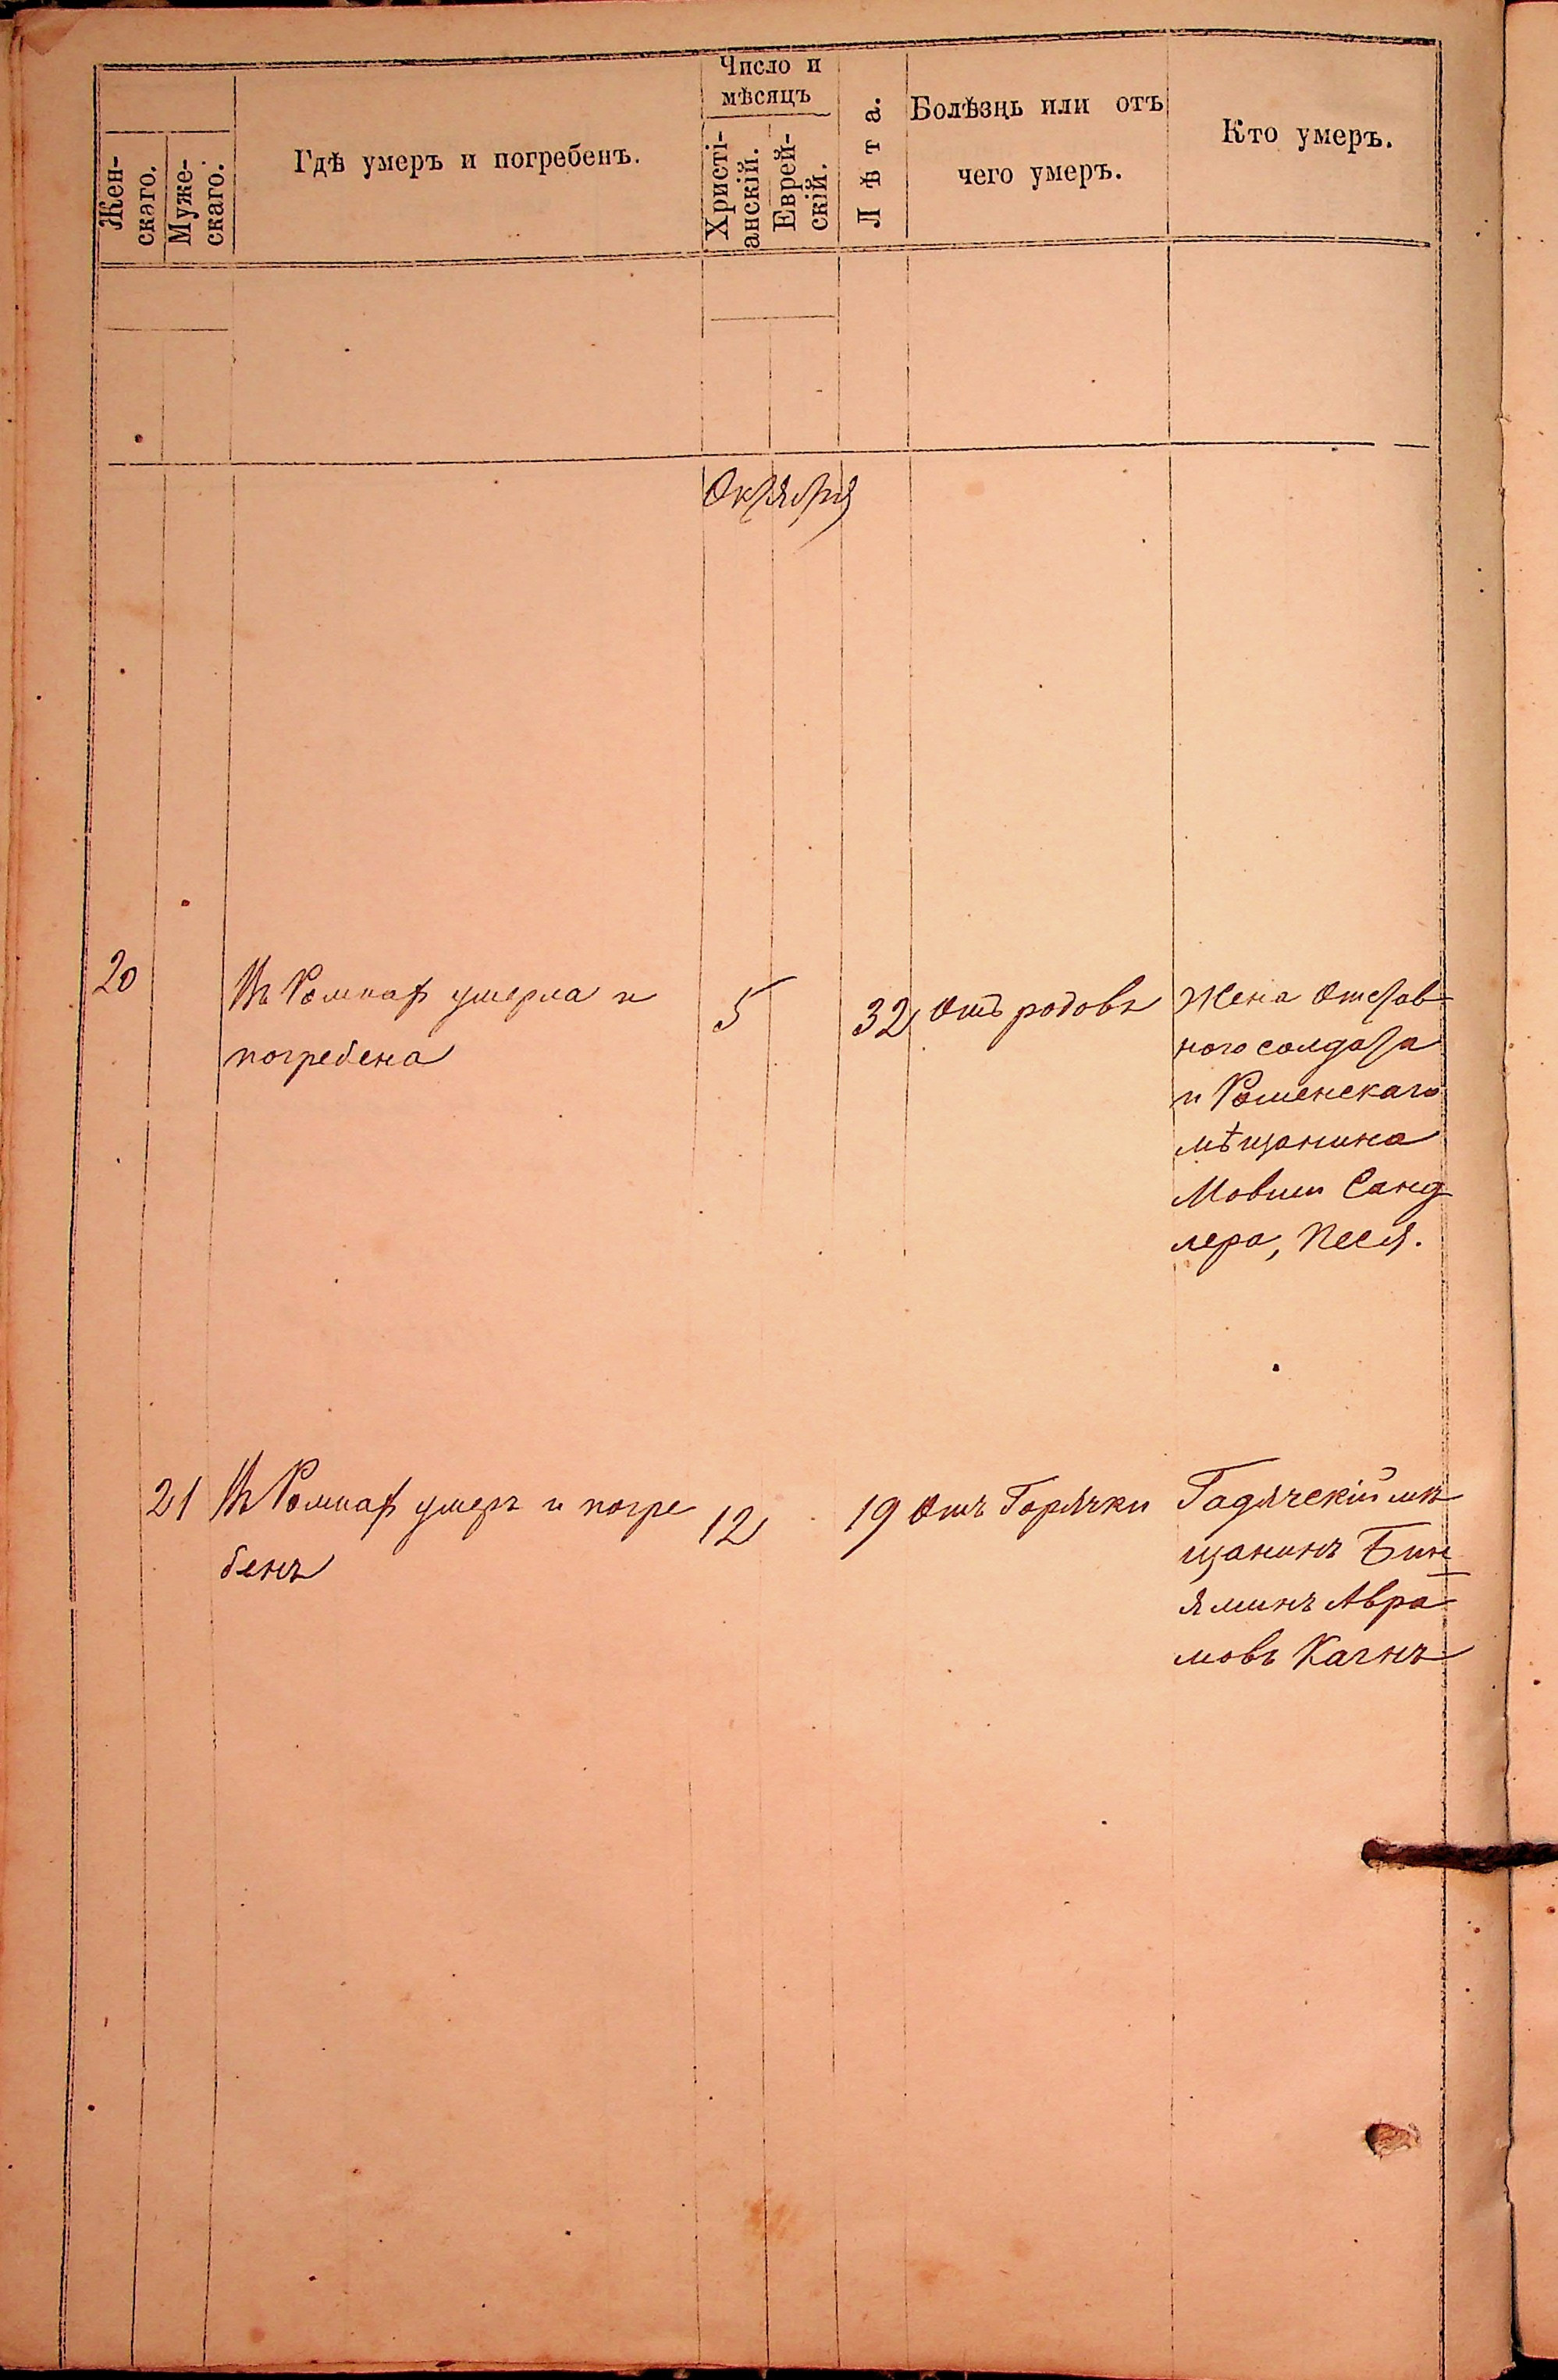 Жен-
скаго.
Муже-
скаго.
Гдѣ умеръ и погребенъ.
Число и
мѣсяцъ
Христі-
анскій.
Еврей-
скій.
Лѣта.
Болѣзнь или отъ
чего умеръ.
Кто умеръ.
Октября
20
Въ Ромнахъ умерла и
погребена
5
32
Отъ родовъ
Жена Отстав-
ного солдата
и Роменскаго
мѣщанина
Мовши Санд
лера, Песя.
21
Въ Ромнахъ умеръ и погре
бенъ
12
19
Отъ Горячки
Гадячскій мѣ
щанинъ Бин
яминъ Авра
мовъ Каганъ